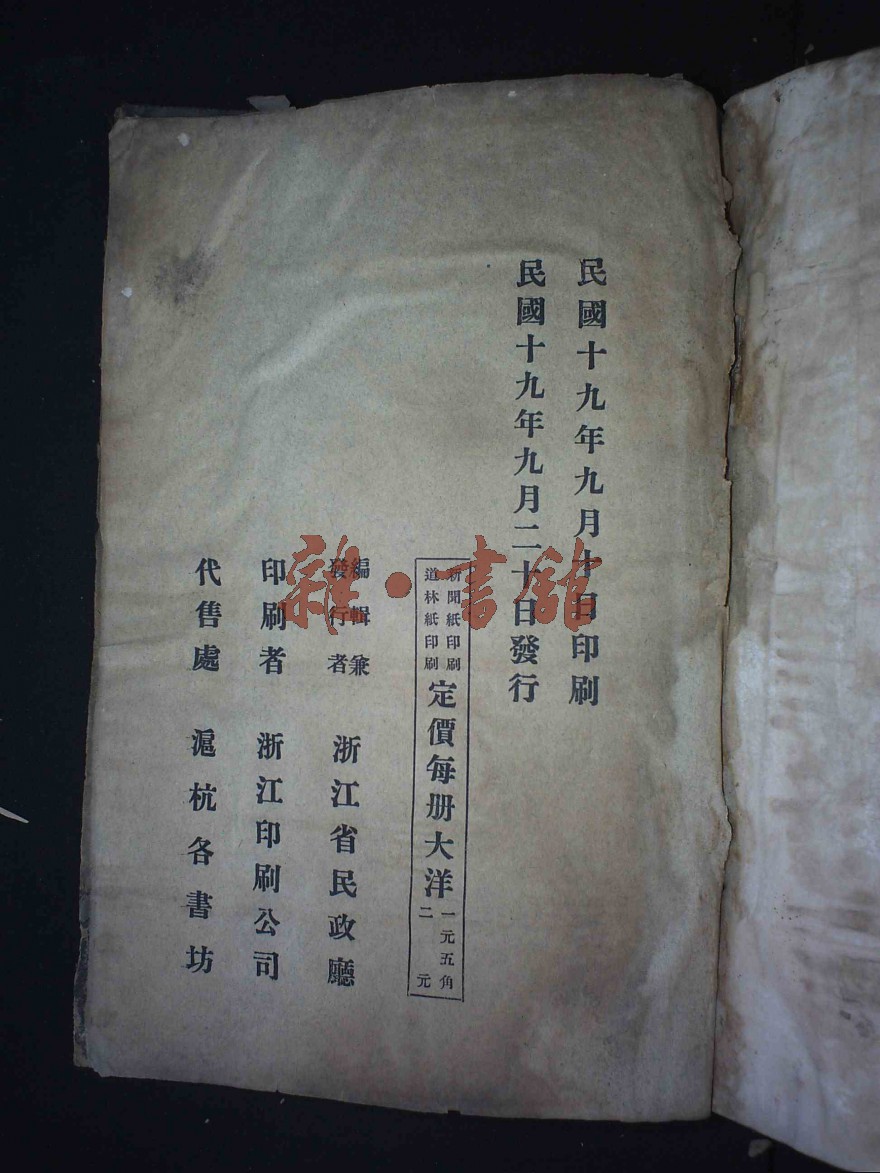 民國十九年九月十日印刷
民國十九年九月二十日發行
新聞紙印刷
道林紙印刷
定價每册大洋
一元五角
二元
編輯兼
發行者
浙江省民政廳
印刷者 浙江印刷公司
代售處 滬杭各書坊
雜·書館